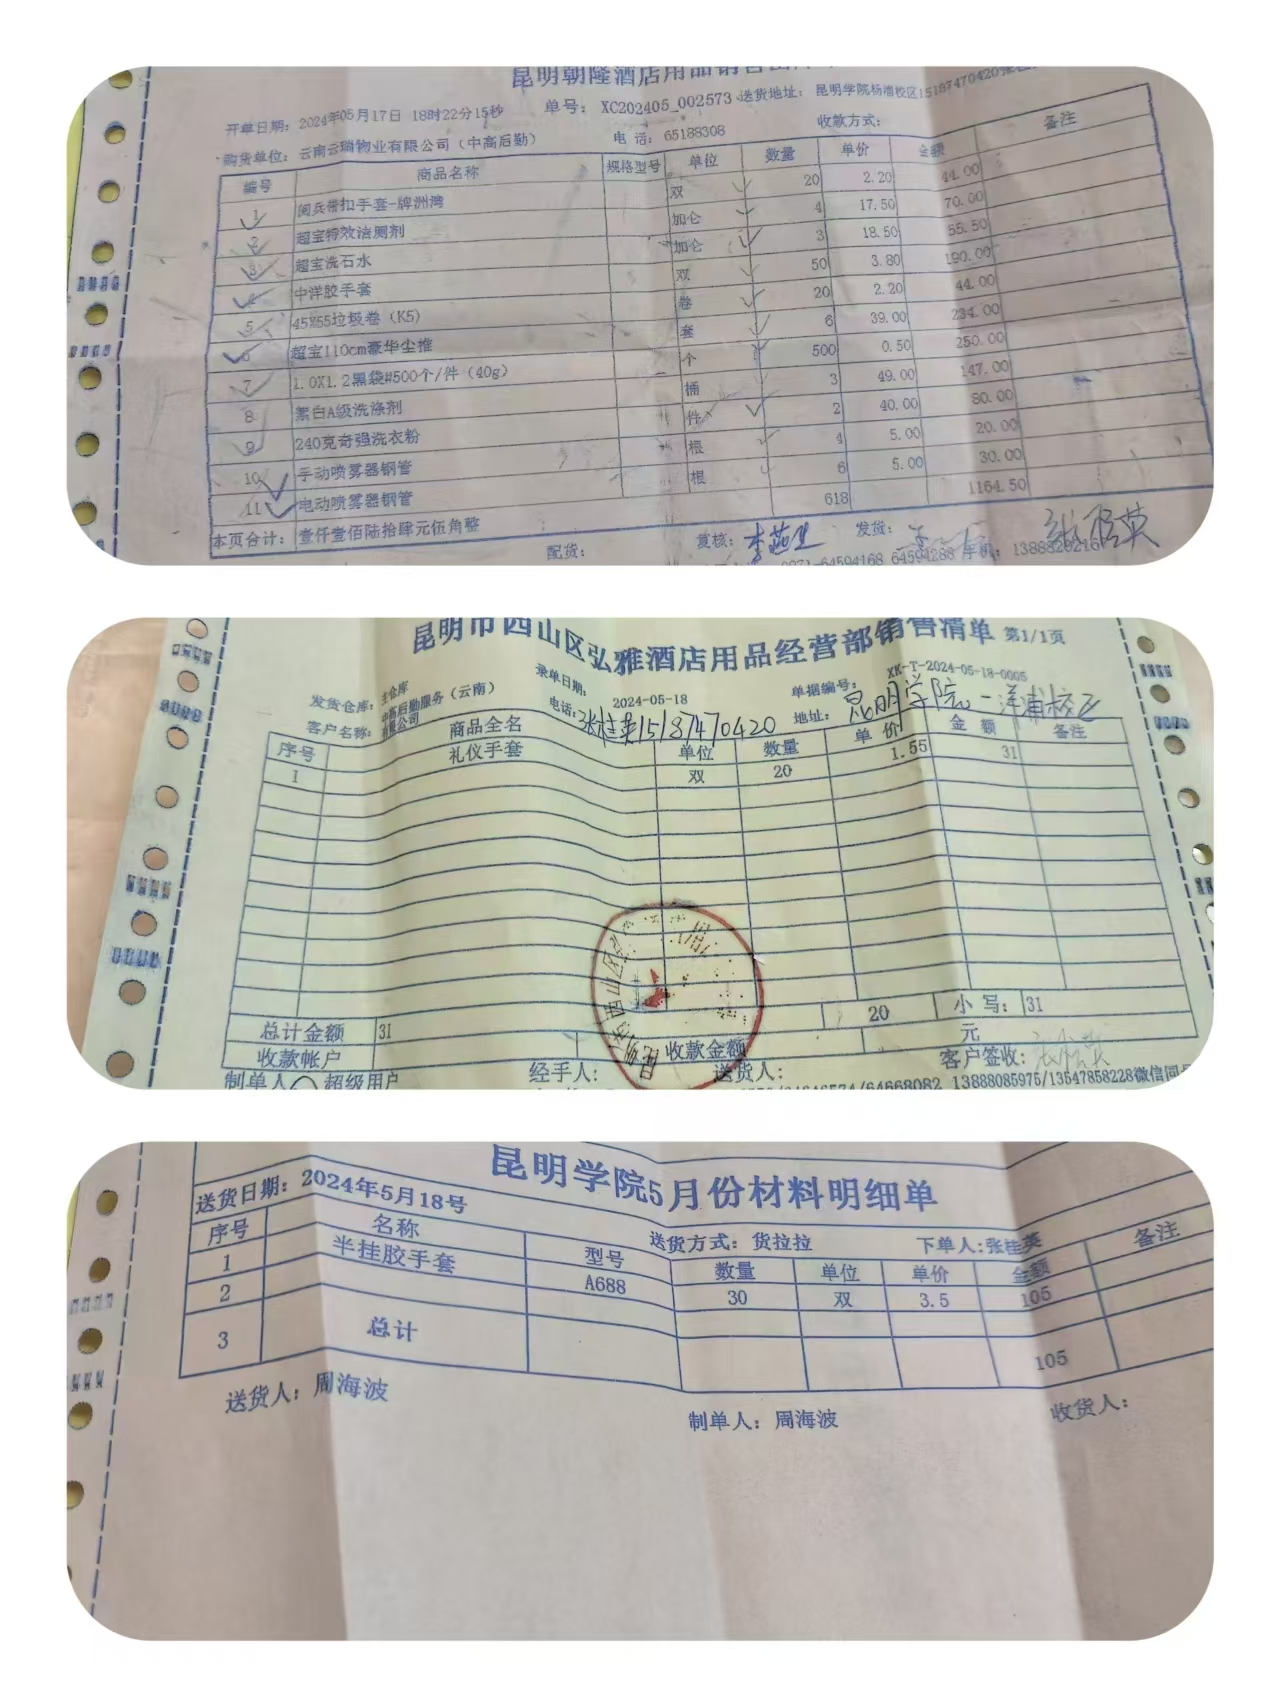 昆明朝隆酒店用品销售出库
开单日期：2024年05月17日 18时22分15秒 单号：XC202405_002573 送货地址：昆明学院杨浦校区15187470420张
购货单位：云南云瑞物业有限公司（中高后勤） 电 话：65188308 收款方式：
编号 商品名称 规格型号 单位 数量 单价 金额 备注
1 阅兵带扣手套-牌洲湾 双 20 2.20 44.00
2 超宝特效洁厕剂 加仑 4 17.50 70.00
3 超宝洗石水 加仑 3 18.50 55.50
4 中洋胶手套 双 50 3.80 190.00
5 45X55垃圾卷（K5） 卷 20 2.20 44.00
6 超宝110cm豪华尘推 套 6 39.00 234.00
7 1.0X1.2黑袋#500个/件（40g） 个 500 0.50 250.00
8 絮白A级洗涤剂 桶 3 49.00 147.00
9 240克奇强洗衣粉 件 2 40.00 80.00
10 手动喷雾器钢管 根 4 5.00 20.00
11 电动喷雾器钢管 根 6 5.00 30.00
本页合计：壹仟壹佰陆拾肆元伍角整 618 1164.50
配货： 复核： 发货：
0871-64594168 64594288
昆明市西山区弘雅酒店用品经营部销售清单 第1/1页
发货仓库：主仓库 录单日期：2024-05-18 单据编号：XK-T-2024-05-18-0005
客户名称：中高后勤服务（云南）有限公司 电话：张桂英15187470420 地址：昆明学院一洋浦校区
序号 商品全名 单位 数量 单 价 金 额 备注
1 礼仪手套 双 20 1.55 31
总计金额 31 20 小 写：31
收款帐户 收款金额 元
制单人 超级用户 经手人： 送货人： 客户签收：张桂英
64668082 13888085975/13547858228微信同
昆明学院5月份材料明细单
送货日期：2024年5月18号 送货方式：货拉拉 下单人：张桂英
序号 名称 型号 数量 单位 单价 金额 备注
1 半挂胶手套 A688 30 双 3.5 105
2
3 总计 105
送货人：周海波 制单人：周海波 收货人：